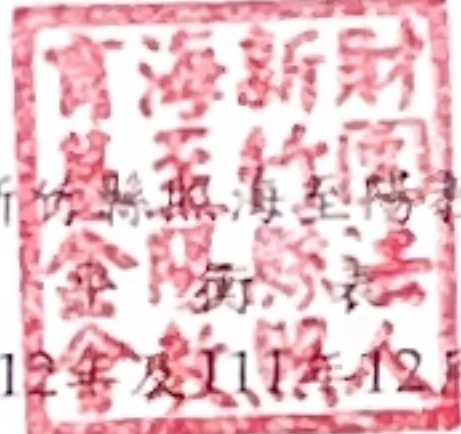 財團法人
新竹縣照
海至陽教
育基金會
新竹縣照海至陽教
平衡表
12年及111年12月